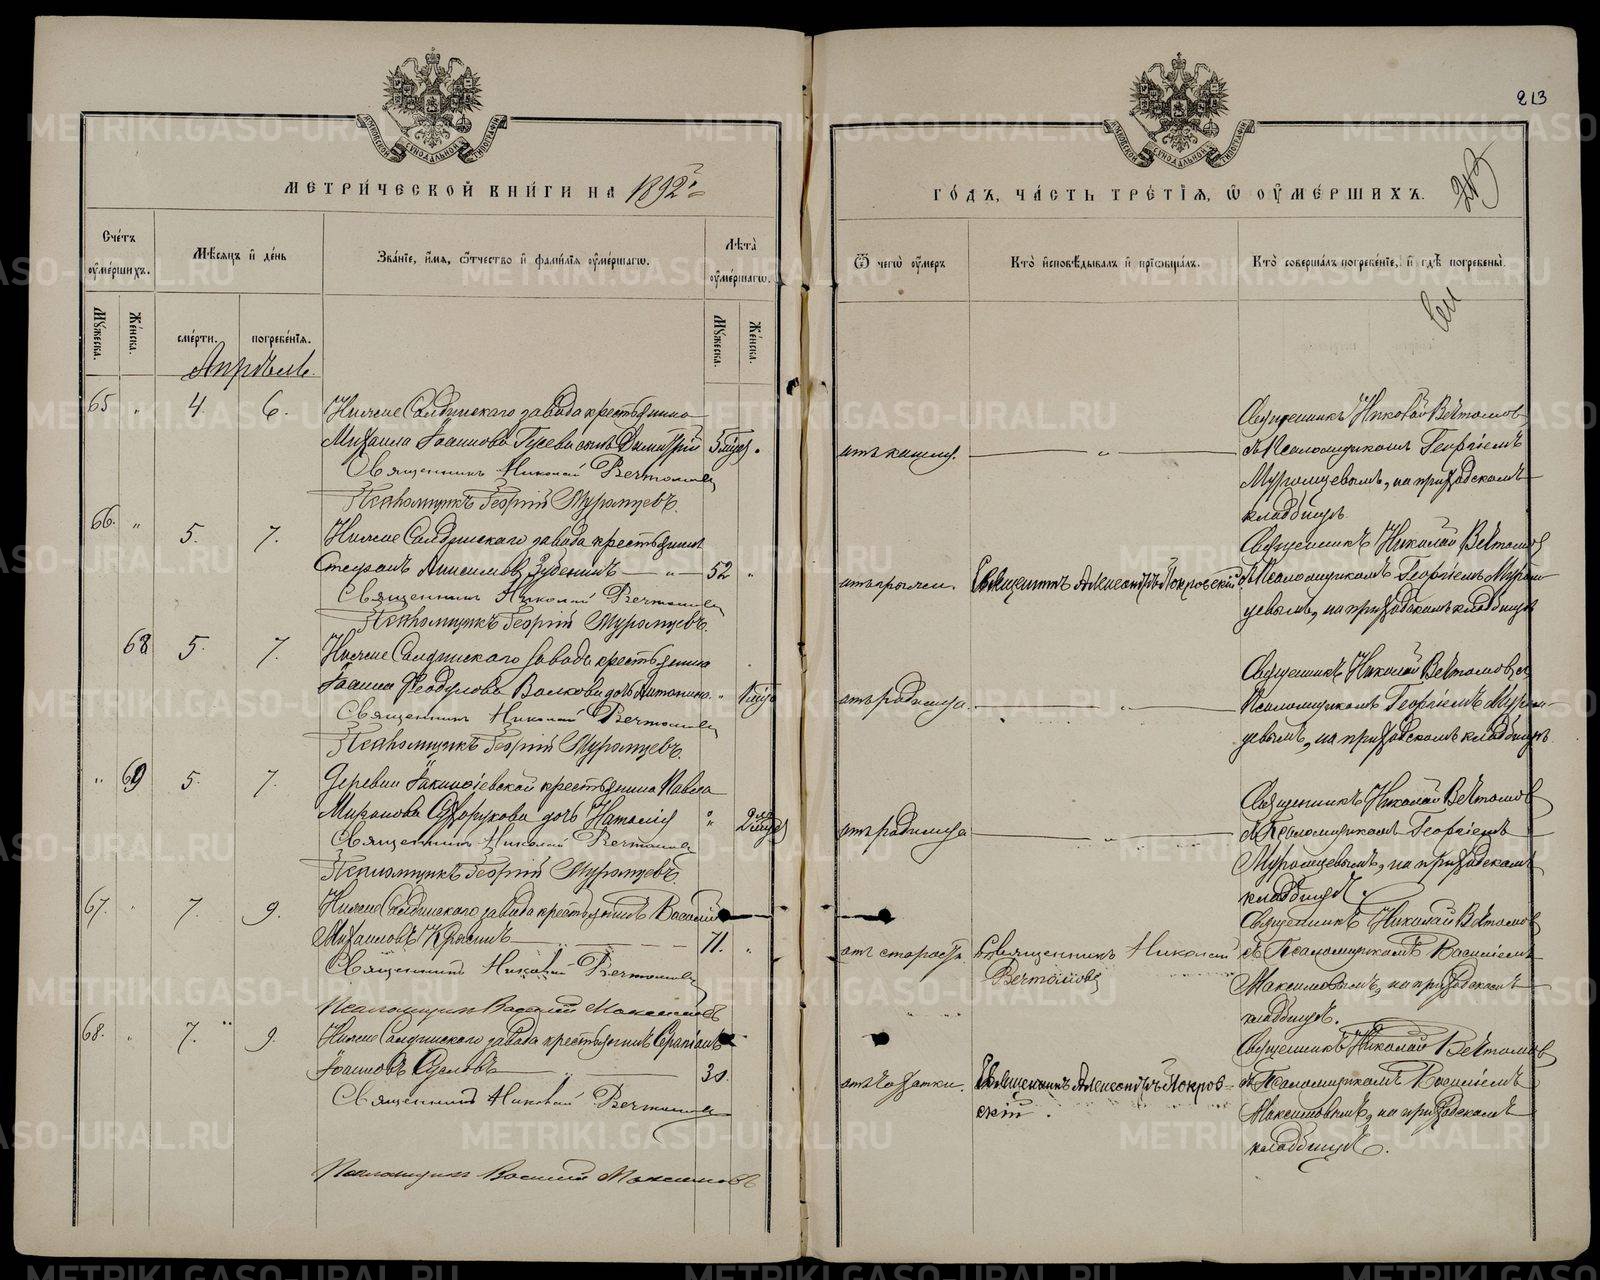 213
213
МЕТРИЧЕСКОЙ КНИГИ НА 1892 г.
ГОДЪ, ЧАСТЬ ТРЕТІЯ, Ѿ ОУМЕРШИХЪ.
Счетъ оумершихъ.
Мѣсяцъ и день
Званіе, имя, ѿтчество и фамилія оумершагѡ.
Лѣта оумершагѡ.
Ѿ чегѡ оумеръ
Кто исповѣдывалъ и пріѡбщалъ.
Кто совершалъ погребеніе, и гдѣ погребены.
Мужеска.
Женска.
смерти.
погребенія.
Мужеска.
Женска.
Апрѣль.
65 " 4. 6. Нижне Салдинскаго завода крестьянина
Михаила Іоаннова Гусева сынъ Димитрій
Священникъ Николай Вечтомовъ
Псаломщикъ Георгій Муромцевъ.
отъ кашля. "
Священникъ Николай Вечтомовъ
съ Псаломщикомъ Георгіемъ
Муромцевымъ, на приходскомъ
кладбищѣ
66. " 5. 7. Нижне Салдинскаго завода крестьянинъ
Стефанъ Анисимовъ Зубенинъ " 52 "
Священникъ Николай Вечтомовъ
Псаломщикъ Георгій Муромцевъ.
Священникъ Александръ Покровскій.
Священникъ Николай Вечтомовъ
съ Псаломщикомъ Георгіемъ Муром-
цевымъ, на приходскомъ кладбищѣ
68 5. 7. Нижне Салдинскаго завода крестьянина
Іоанна Феодулова Волкова дочь Антонина. "
Священникъ Николай Вечтомовъ
Псаломщикъ Георгій Муромцевъ.
отъ родимца. "
Священникъ Николай Вечтомовъ съ
Псаломщикомъ Георгіемъ Муром-
цевымъ, на приходскомъ кладбищѣ
" 69 5. 7. Деревни Іакинѳіевской крестьянина Павла
Миронова дочь Наталія "
Священникъ Николай Вечтомовъ
Псаломщикъ Георгій Муромцевъ.
отъ родимца "
Священникъ Николай Вечтомовъ
съ Псаломщикомъ Георгіемъ
Муромцевымъ, на приходскомъ
кладбищѣ.
67. " 7. 9. Нижне Салдинскаго завода крестьянинъ Василій
Михаиловъ Красинъ " 71. "
Священникъ Николай Вечтомовъ
Псаломщикъ Василій Максимовъ
отъ старости.
Священникъ Николай
Вечтомовъ
Священникъ Николай Вечтомовъ
съ Псаломщикомъ Василіемъ
Максимовымъ, на приходскомъ
кладбищѣ.
68. " 7. " 9. Нижне Салдинскаго завода крестьянинъ Серапіонъ
Іоанновъ "
Священникъ Николай Вечтомовъ
Псаломщикъ Василій Максимовъ
отъ чахотки.
Священникъ Александръ Покров-
скій.
Священникъ Николай Вечтомовъ
съ Псаломщикомъ Василіемъ
Максимовымъ, на приходскомъ
кладбищѣ.
METRIKI.GASO-URAL.RU